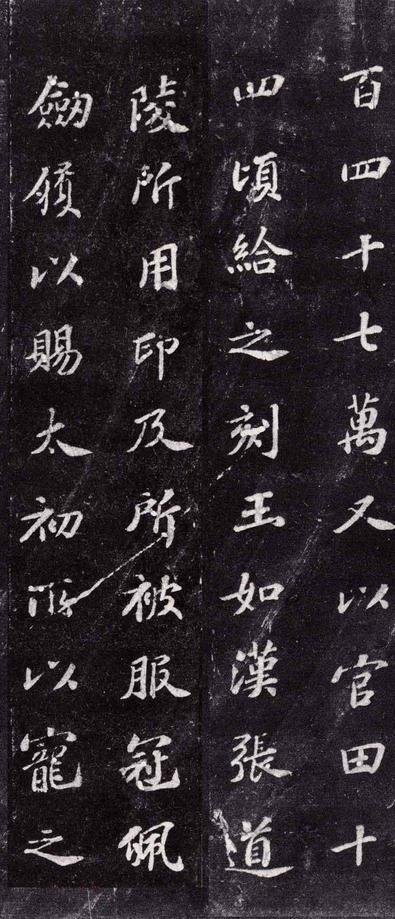 百四十七萬又以官田十
四頃給之刻玉如漢張道
陵所用印及所被服冠佩
劒履以賜太初所以寵之